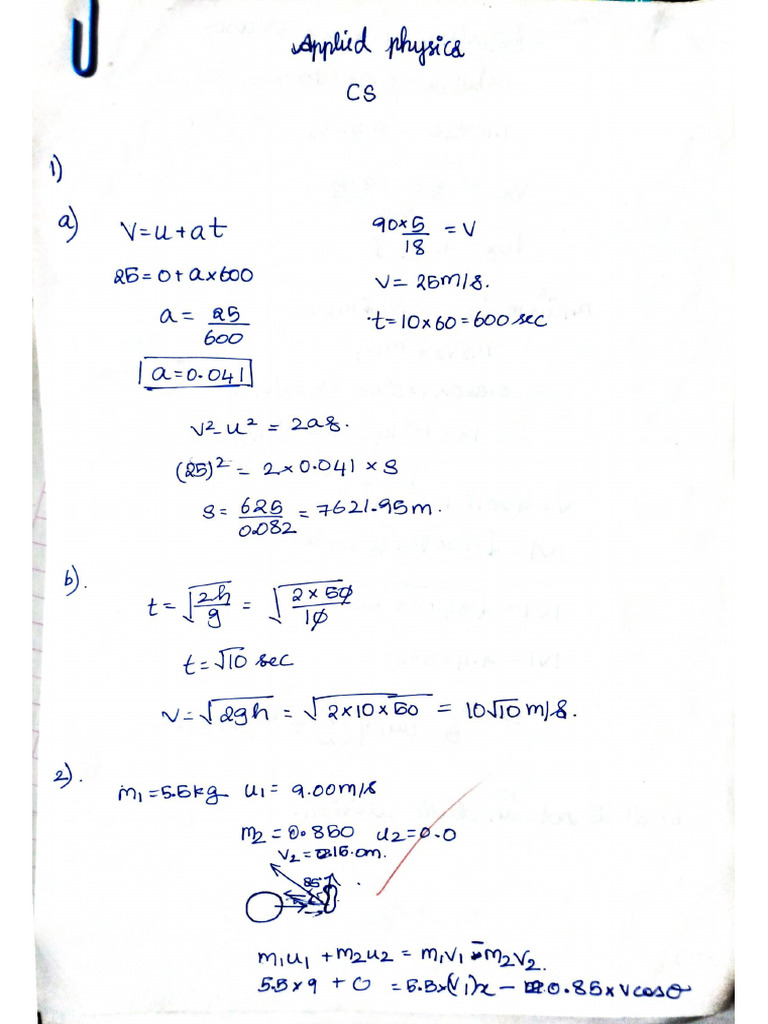 Applied physics
CS
1)
a) V=u+at
90×5/18 = V
25=0+a×600
V= 25m/s.
a= 25/600
t=10×60=600 sec
a=0.041
v²-u² = 2as.
(25)² = 2×0.041×s
s= 625/0.082 = 7621.95m.
b). t=√2h/g = √2×50/10
t=√10 sec
v=√2gh = √2×10×50 = 10√10 m/s.
2). m₁=5.5kg u₁= 9.00m/s
m₂=0.850 u₂=0.0
85°
m₁u₁ + m₂u₂ = m₁v₁ - m₂v₂.
5.5×9 + 0 = 5.5×(v₁)x - 0.85×vcosθ